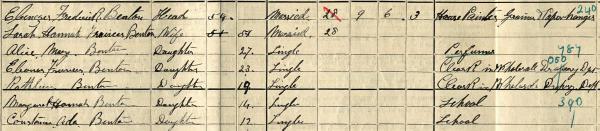 Ebenezer Frederick Benton Head 54 Married 28 9 6 3 House Painter Grainer & Paper Hanger 240
Sarah Hannah Frances Benton Wife 51 Married 28
Alice Mary Benton Daughter 27 Single Perfumer 787
Eleanor Frances Benton Daughter 23 Single Clerk in Wholesale Drapery Dpt 050
Kathleen Benton Daughter 19 Single Clerk in Wholesale Drapery Dept
Margaret Hannah Benton Daughter 14 Single School 390
Constance Ada Benton Daughter 12 Single School